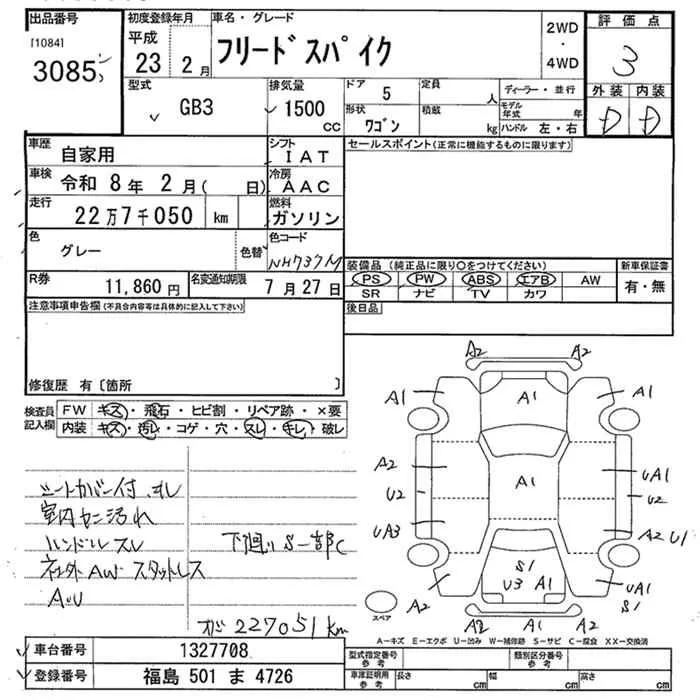 出品番号
[1084]
3085
初度登録年月
平成
23 2月
車名・グレード
フリードスパイク
2WD
・
4WD
評価点
3
外装 内装
D D
型式
GB3
排気量
1500
CC
ドア
5
定員
人
形状
ワゴン
積載
kg
ディーラー・並行
モデル年式 年
ハンドル 左・右
車歴
自家用
シフト
IAT
車検
令和 8年 2月( 日)
冷房
AAC
走行
22万7千050 km
燃料
ガソリン
色
グレー
色替
色コード
NH737M
R券
11,860円
名変通知期限
7月27日
セールスポイント(正常に機能するものに限ります)
装備品(純正品に限り○をつけてください)
PS PW ABS エアB AW
SR ナビ TV カワ
新車保証書
有・無
後日品
注意事項申告欄(不具合内容等は具体的に記入して下さい)
修復歴 有〔箇所 〕
検査員記入欄
FW キズ・飛石・ヒビ割・リペア跡・×要
内装 キズ・汚レ・コゲ・穴・スレ・キレ・破レ
シートカバー付 キレ
室内カニ汚れ
ハンドルスレ
社外AW スタットレス
下廻りS一部C
227051km
A2 A2
A1 A1 A1
A2 A1 UA1
U2 U2
UA3 A2 U1
S1
U3 A1
UA1
S1
A2 A2 A1 A2
スペア
A−キズ E−エクボ U−凹み W−補修跡 S−サビ C−腐食 XX−交換済
車台番号
1327708
登録番号
福島 501 ま 4726
型式指定番号
参考
類別区分番号
参考
車庫証明用
参考
長さ cm
幅 cm
高さ cm